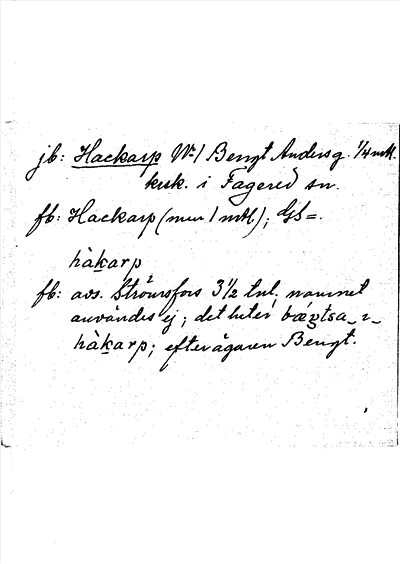 jb: Hackarp No 1 Bengt Andersg. 1/4 mtl.
krsk. i Fagered sn.
fb: Hackarp (nu 1 mtl.); GS=.
hàkarp
fb: avs. Strömsfors 3 1/2 tnl. namnet
användes ej; det heter bæŋtsa_ı_
hàkarp; efter ägaren Bengt.